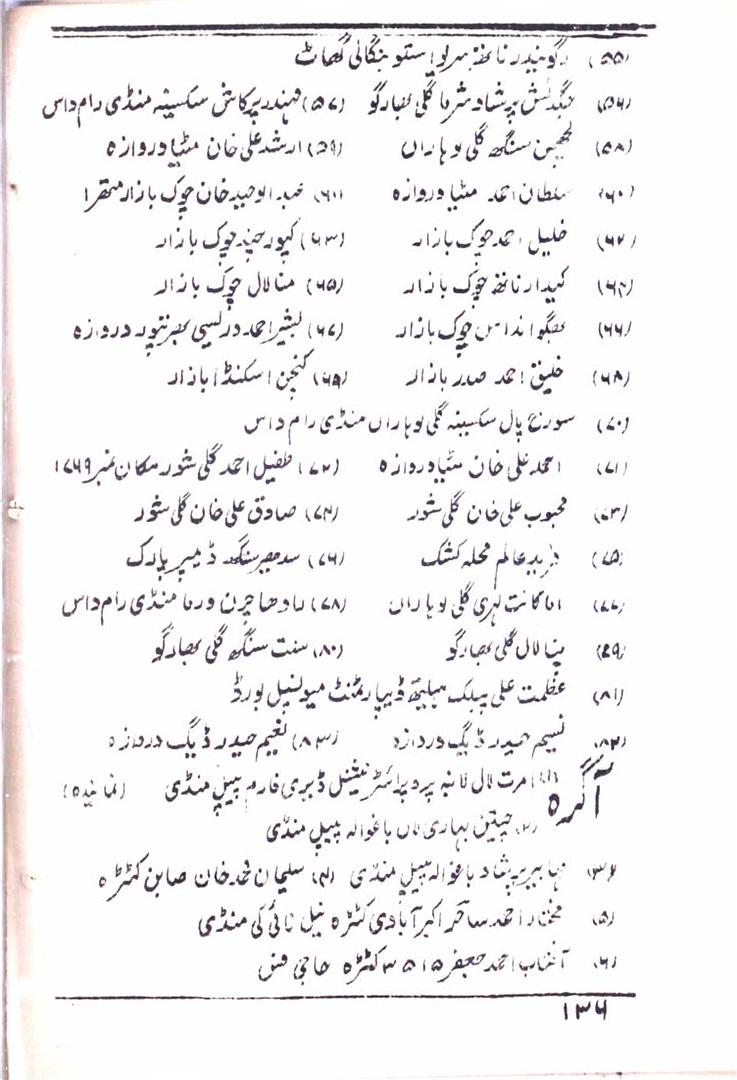 (۵۵) گوبندر ناتھ سریواستو بنگالی گھاٹ
(۵۶) جگدیش پرشاد شرما گلی بھارگو (۵۷) مہندر پرکاش سکسینہ منڈی رام داس
(۵۸) لچھمن سنگھ گلی لوہاراں (۵۹) ارشد علی خان مٹیا دروازہ
(۶۰) سلطان احمد مٹیا دروازہ (۶۱) عبد الوحید خان چوک بازار متھرا
(۶۲) خلیل احمد چوک بازار (۶۳) کپور چند چوک بازار
(۶۴) کیدار ناتھ چوک بازار (۶۵) منا لال چوک بازار
(۶۶) بھگوانداس چوک بازار (۶۷) بشیر احمد درلیسی بھرتپور دروازہ
(۶۸) خلیق احمد صدر بازار (۶۹) کنجن اسکنڈا بازار
(۷۰) سورج پال سکسینہ گلی لوہاراں منڈی رام داس
(۷۱) احمد علی خان مٹیا دروازہ (۷۲) طفیل احمد گلی شور مکان نمبر ۱۷۶۹
(۷۳) محبوب علی خان گلی شور (۷۴) صادق علی خان گلی شور
(۷۵) فرید عالم محلہ کشک (۷۶) سدھیر سنگھ ڈیمپر پارک
(۷۷) اما کانت لہری گلی لوہاراں (۷۸) رادھا چرن ورما منڈی رام داس
(۷۹) پنا لال گلی بھارگو (۸۰) سنت سنگھ گلی بھارگو
(۸۱) عظمت علی پبلک ہیلتھ ڈیپارٹمنٹ میونسپل بورڈ
(۸۲) نسیم حیدر ڈیگ دروازہ (۸۳) نعیم حیدر ڈیگ دروازہ
آگرہ (۱) امرت لال پروپرائٹر نیشنل ڈیری فارم پیپل منڈی (نمائندہ)
(۲) بہاری لال باغوالہ پیپل منڈی
(۳) مہابیر پرشاد باغوالہ پیپل منڈی (۴) سلیمان محمد خان صابن کٹڑہ
(۵) مختار احمد ساحر اکبرآبادی کٹرہ نیل نائی کی منڈی
(۶) آفتاب احمد جعفر ۳۵۱۵ کٹڑہ حاجی
۱۳۶